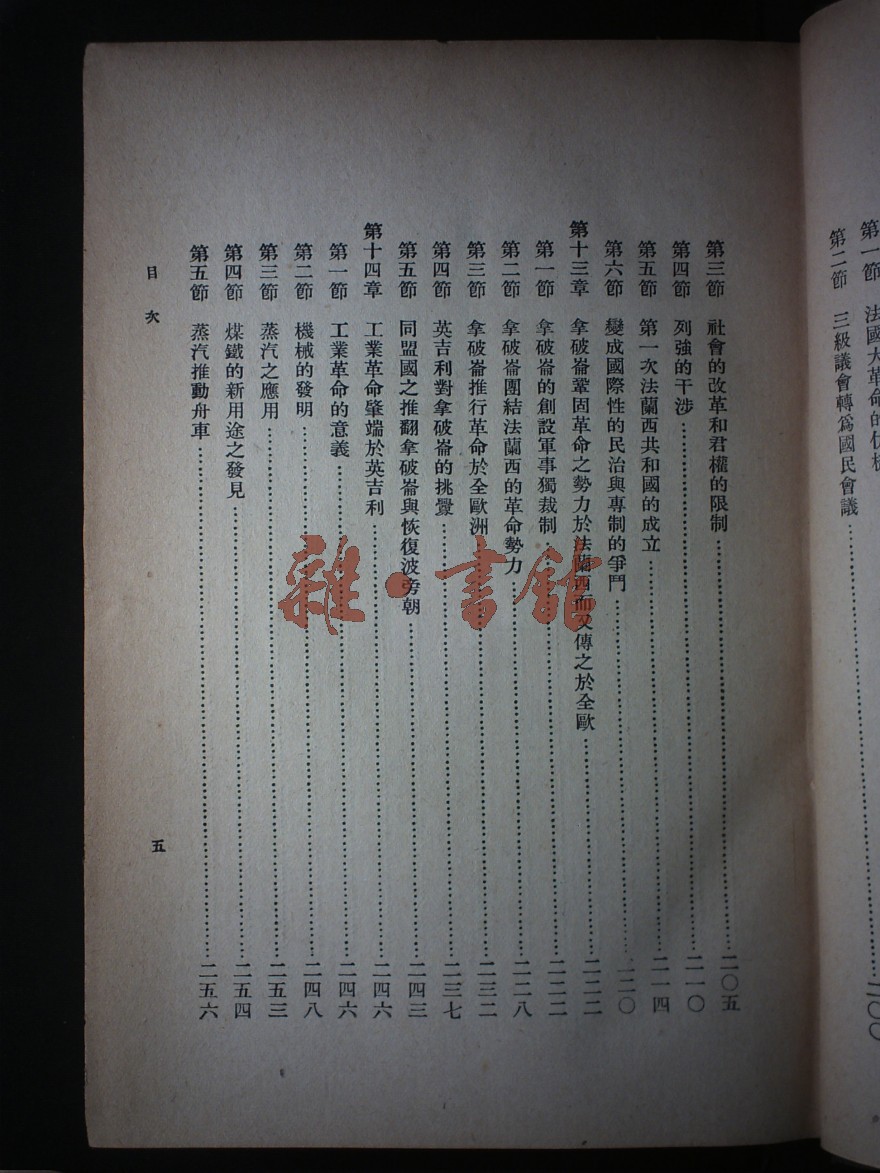 第一節 法國大革命的
第二節 三級議會轉爲國民會議……二〇〇
第三節 社會的改革和君權的限制……二〇五
第四節 列強的干涉……二一〇
第五節 第一次法蘭西共和國的成立……二一四
第六節 變成國際性的民治與專制的爭鬥……二二〇
第十三章 拿破崙鞏固革命之勢力於法蘭西而又傳之於全歐……二二二
第一節 拿破崙的創設軍事獨裁制……二二二
第二節 拿破崙團結法蘭西的革命勢力……二二八
第三節 拿破崙推行革命於全歐洲……二三二
第四節 英吉利對拿破崙的挑釁……二三七
第五節 同盟國之推翻拿破崙與恢復波旁朝……二四三
第十四章 工業革命肇端於英吉利……二四六
第一節 工業革命的意義……二四六
第二節 機械的發明……二四八
第三節 蒸汽之應用……二五三
第四節 煤鐵的新用途之發見……二五四
第五節 蒸汽推動舟車……二五六
目次
五
雜·書館